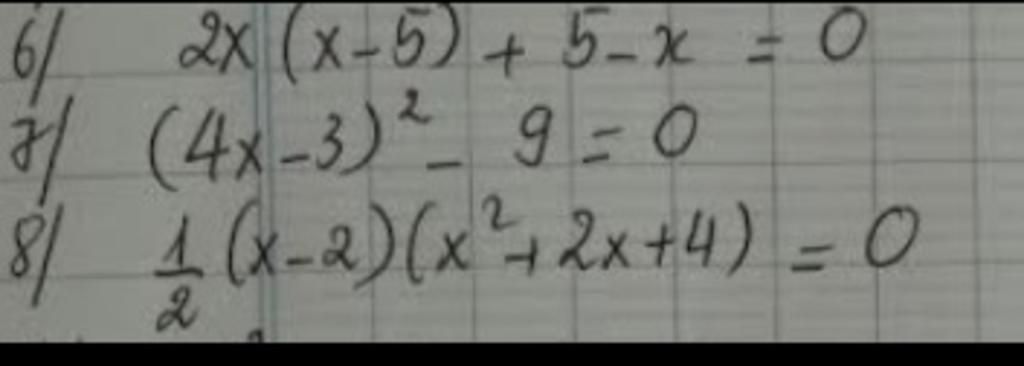 6/ 2x(x-5) + 5-x = 0
7/ (4x-3)² - 9 = 0
8/ 1/2 (x-2)(x²+2x+4) = 0